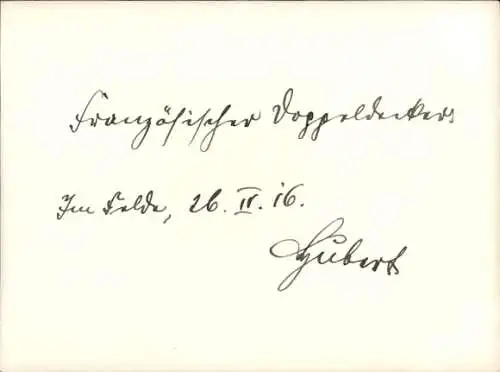 Französischer Doppeldecker.
Im Felde, 26. IV. 16.
Hubert